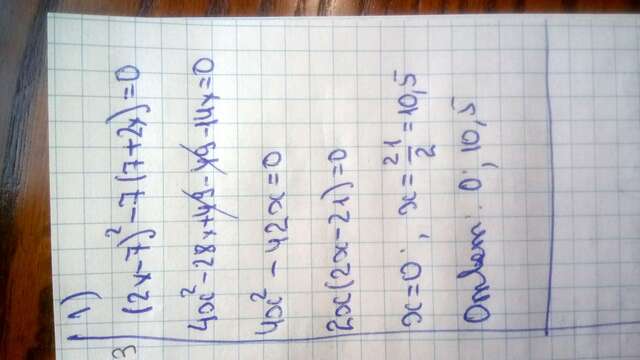 1)
3 (2x-7)²-7(7+2x)=0
4x²-28x+49-49-14x=0
4x²-42x=0
2x(2x-21)=0
x=0; x=21/2=10,5
Ответ: 0; 10,5